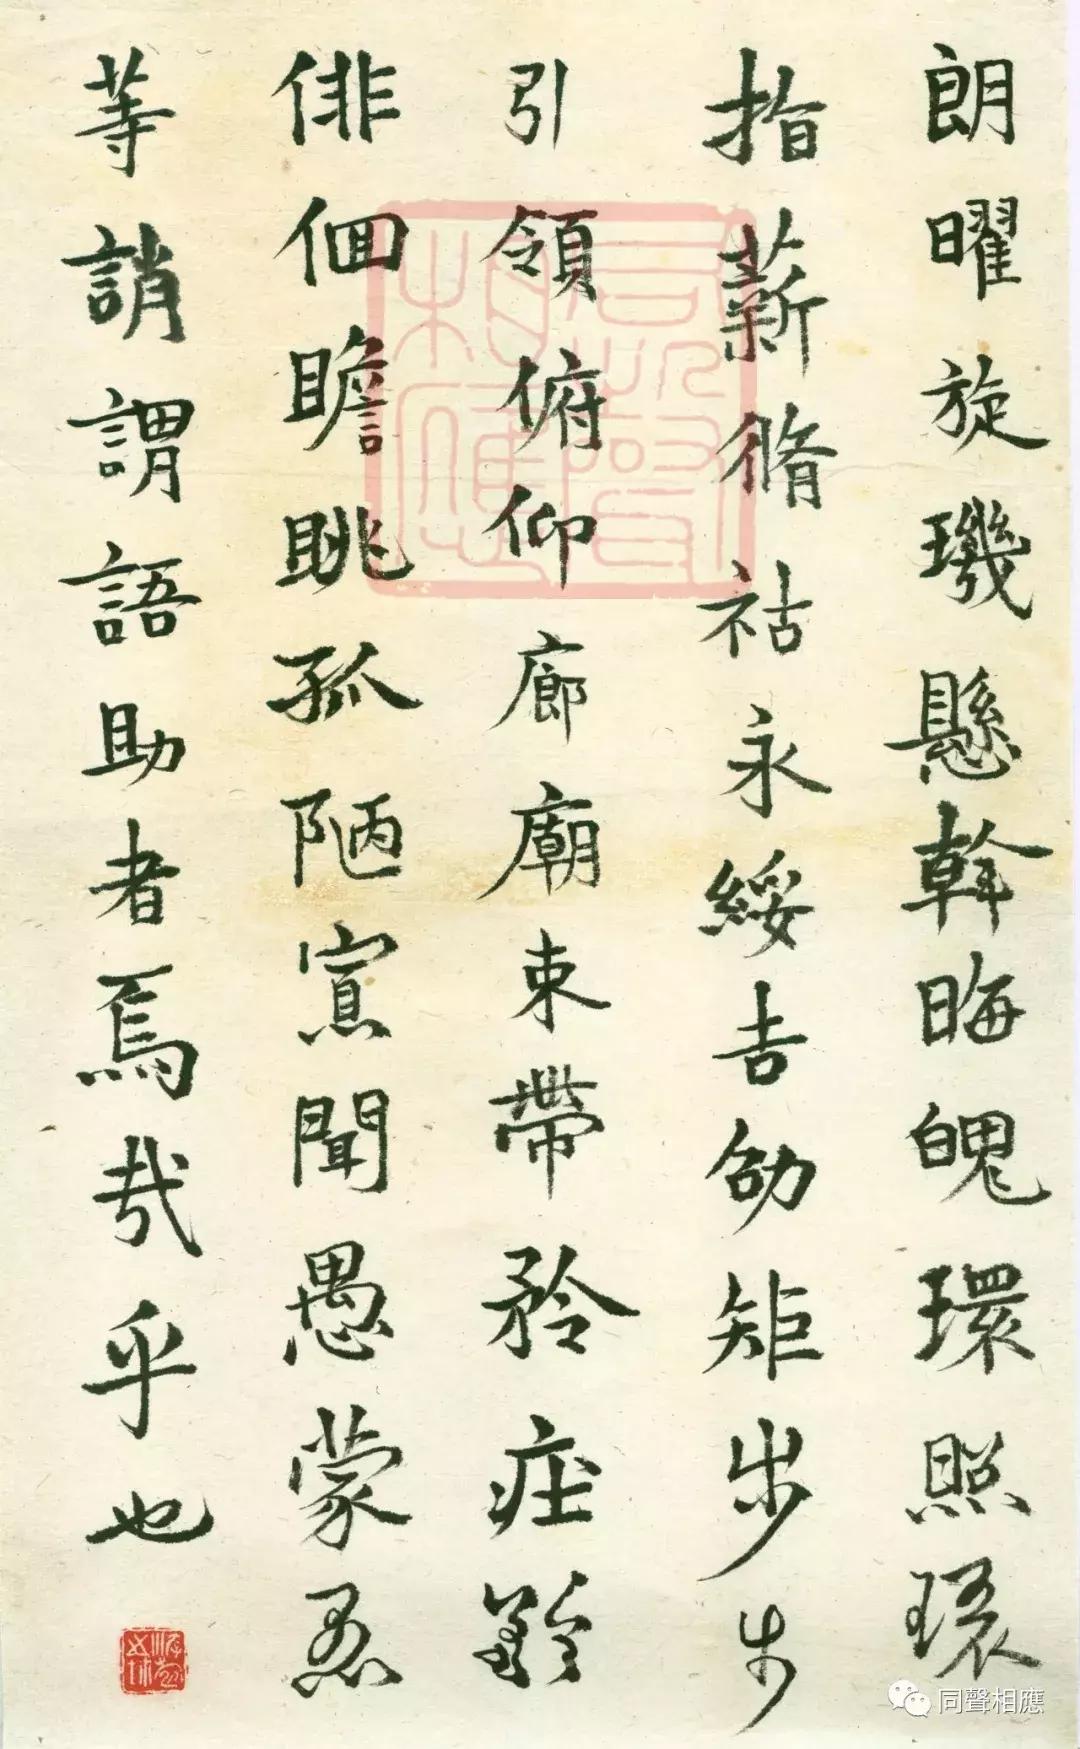 朗曜旋璣懸斡晦魄環照環
指薪脩祜永綏吉劭矩步步
引領俯仰廊廟束帶矜庄
俳佪瞻眺孤陋寡聞愚蒙
等誚謂語助者焉哉乎也
同聲相應
同聲相應